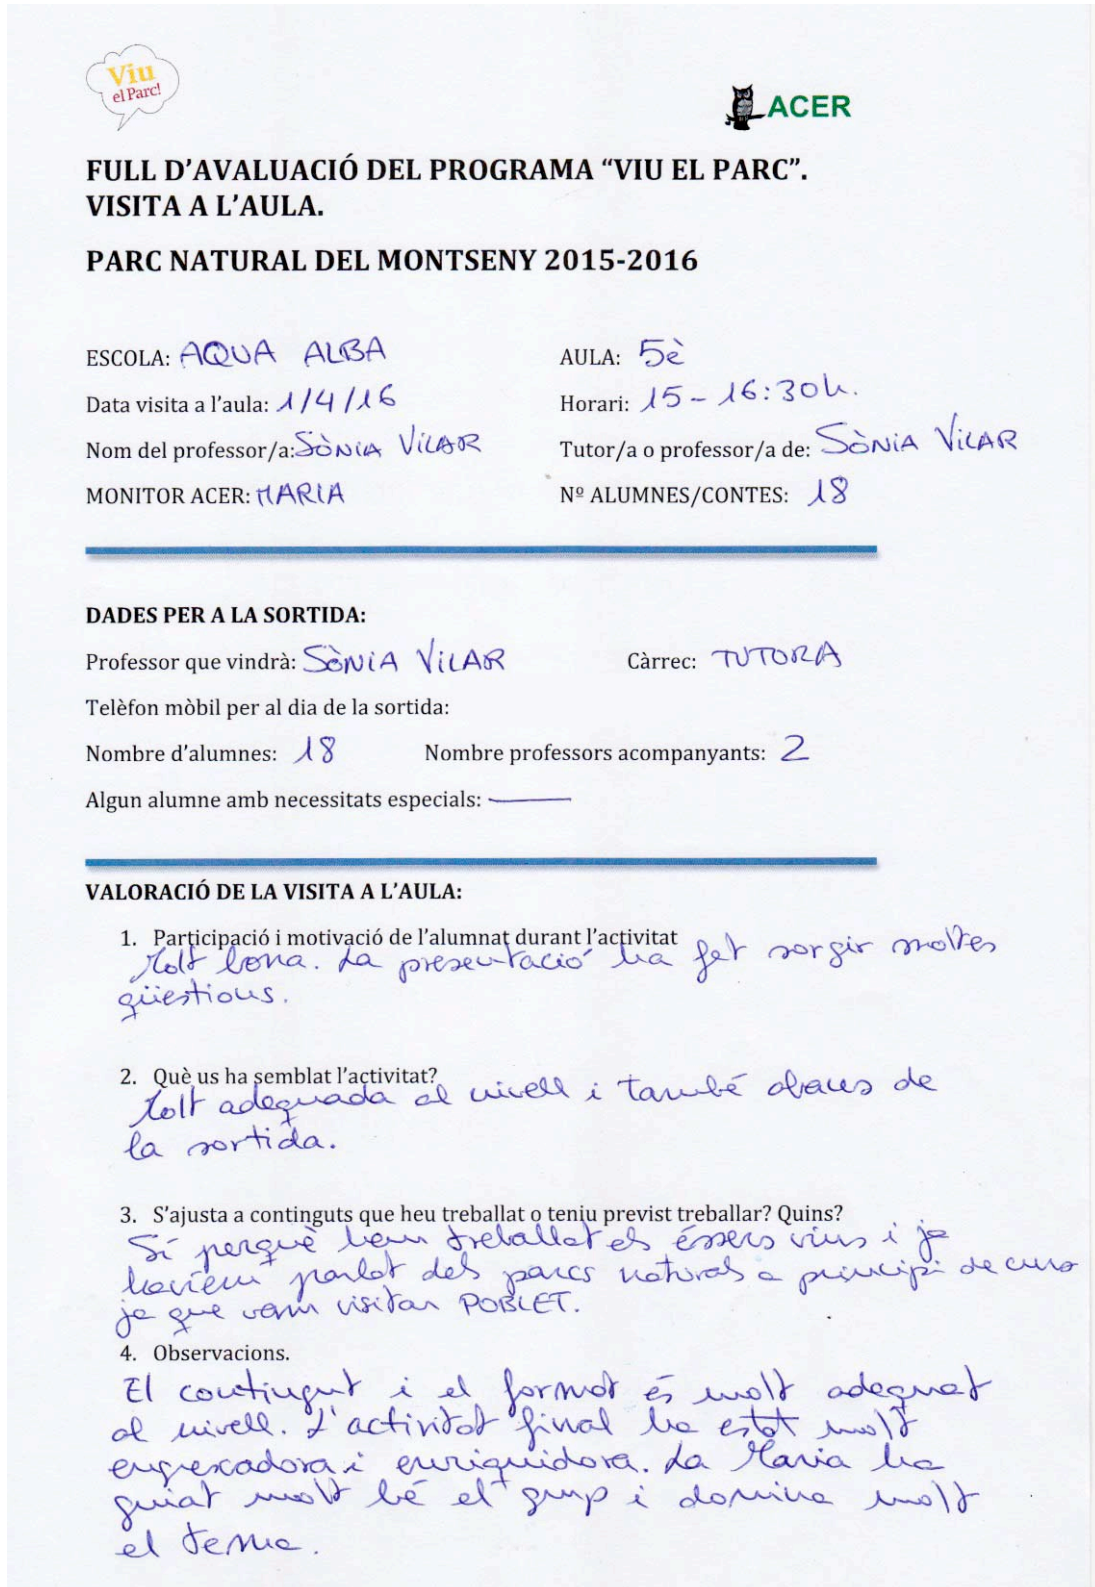 Viu
el Parc!
ACER
FULL D'AVALUACIÓ DEL PROGRAMA “VIU EL PARC”.
VISITA A L'AULA.
PARC NATURAL DEL MONTSENY 2015-2016
ESCOLA: AQUA ALBA AULA: 5è
Data visita a l'aula: 1/4/16 Horari: 15 - 16:30h.
Nom del professor/a: SÒNIA VILAR Tutor/a o professor/a de: SÒNIA VILAR
MONITOR ACER: MARIA Nº ALUMNES/CONTES: 18
DADES PER A LA SORTIDA:
Professor que vindrà: SÒNIA VILAR Càrrec: TUTORA
Telèfon mòbil per al dia de la sortida:
Nombre d'alumnes: 18 Nombre professors acompanyants: 2
Algun alumne amb necessitats especials: ——
VALORACIÓ DE LA VISITA A L'AULA:
1. Participació i motivació de l'alumnat durant l'activitat
Molt bona. La presentació ha fet sorgir moltes
qüestions.
2. Què us ha semblat l'activitat?
Molt adequada al nivell i també abans de
la sortida.
3. S'ajusta a continguts que heu treballat o teniu previst treballar? Quins?
Sí perquè hem treballat els éssers vius i ja
havíem parlat dels parcs naturals a principi de curs
ja que vam visitar POBLET.
4. Observacions.
El contingut i el format és molt adequat
al nivell. L'activitat final ha estat molt
engrescadora i enriquidora. La Maria ha
guiat molt bé el grup i domina molt
el tema.